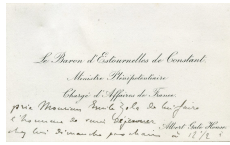 Le Baron d'Estournelles de Constant
Ministre Plénipotentiaire
Chargé d'Affaires de France
prie Monsieur Emile Zola de lui faire
l'honneur de venir déjeuner
Albert Gate House
chez lui dimanche prochain à